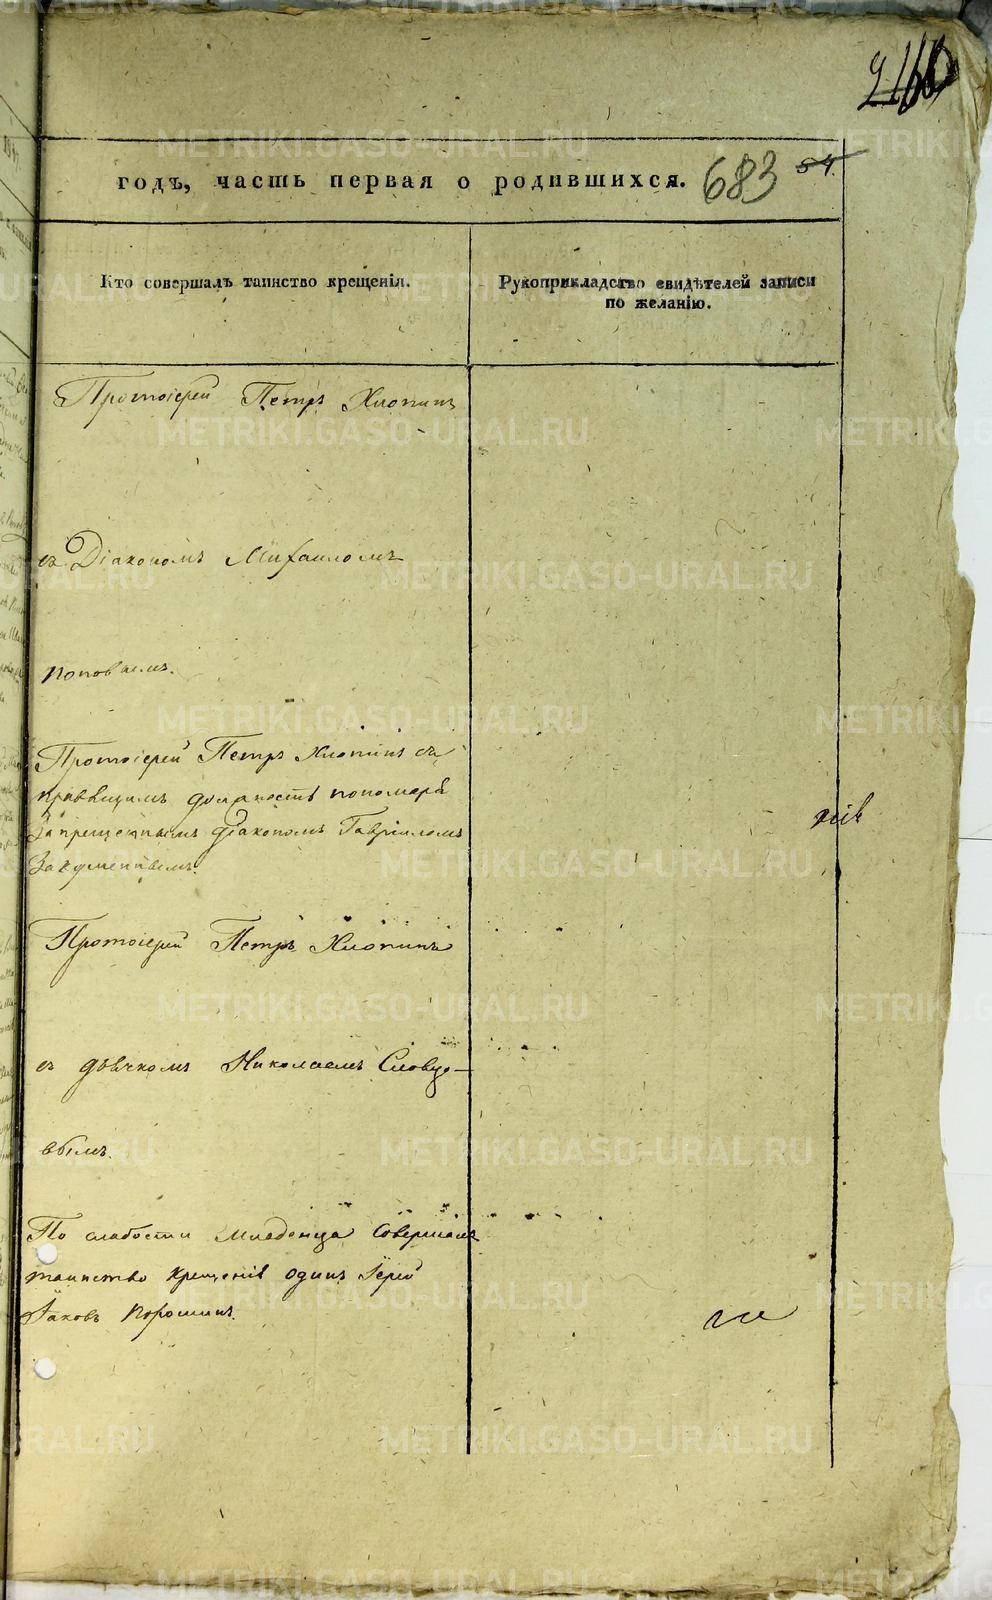 годъ, часть первая о родившихся. 683 54.
Кто совершалъ таинство крещенія.
Рукоприкладство свидѣтелей записи
по желанію.
Протоіерей Петръ Хлопинъ
съ Діакономъ Михаиломъ
поповымъ.
Протоіерей Петръ Хлопинъ съ
правящимъ должность пономаря
запрещеннымъ діакономъ Гавріиломъ
Протоіерей Петръ Хлопинъ
съ дьячкомъ Николаемъ Словцо-
вымъ.
По слабости младенца совершалъ
таинство крещенія одинъ Іерей
Іаковъ Порошинъ.
METRIKI.GASO-URAL.RU